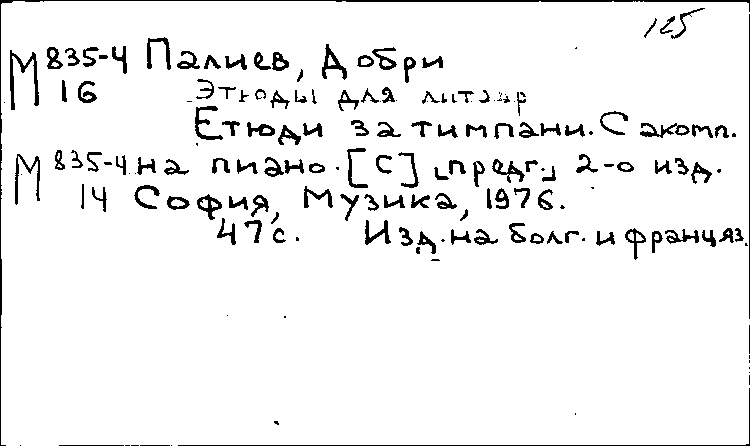 125
М 835-4 Палиев, Добри
16 Этюды для литавр
Етюди за тимпани. С акомп.
М 835-4 на пиано. [С] предг. 2-о изд.
14 София, Музика, 1976.
47 с. Изд. на болг. и француз.